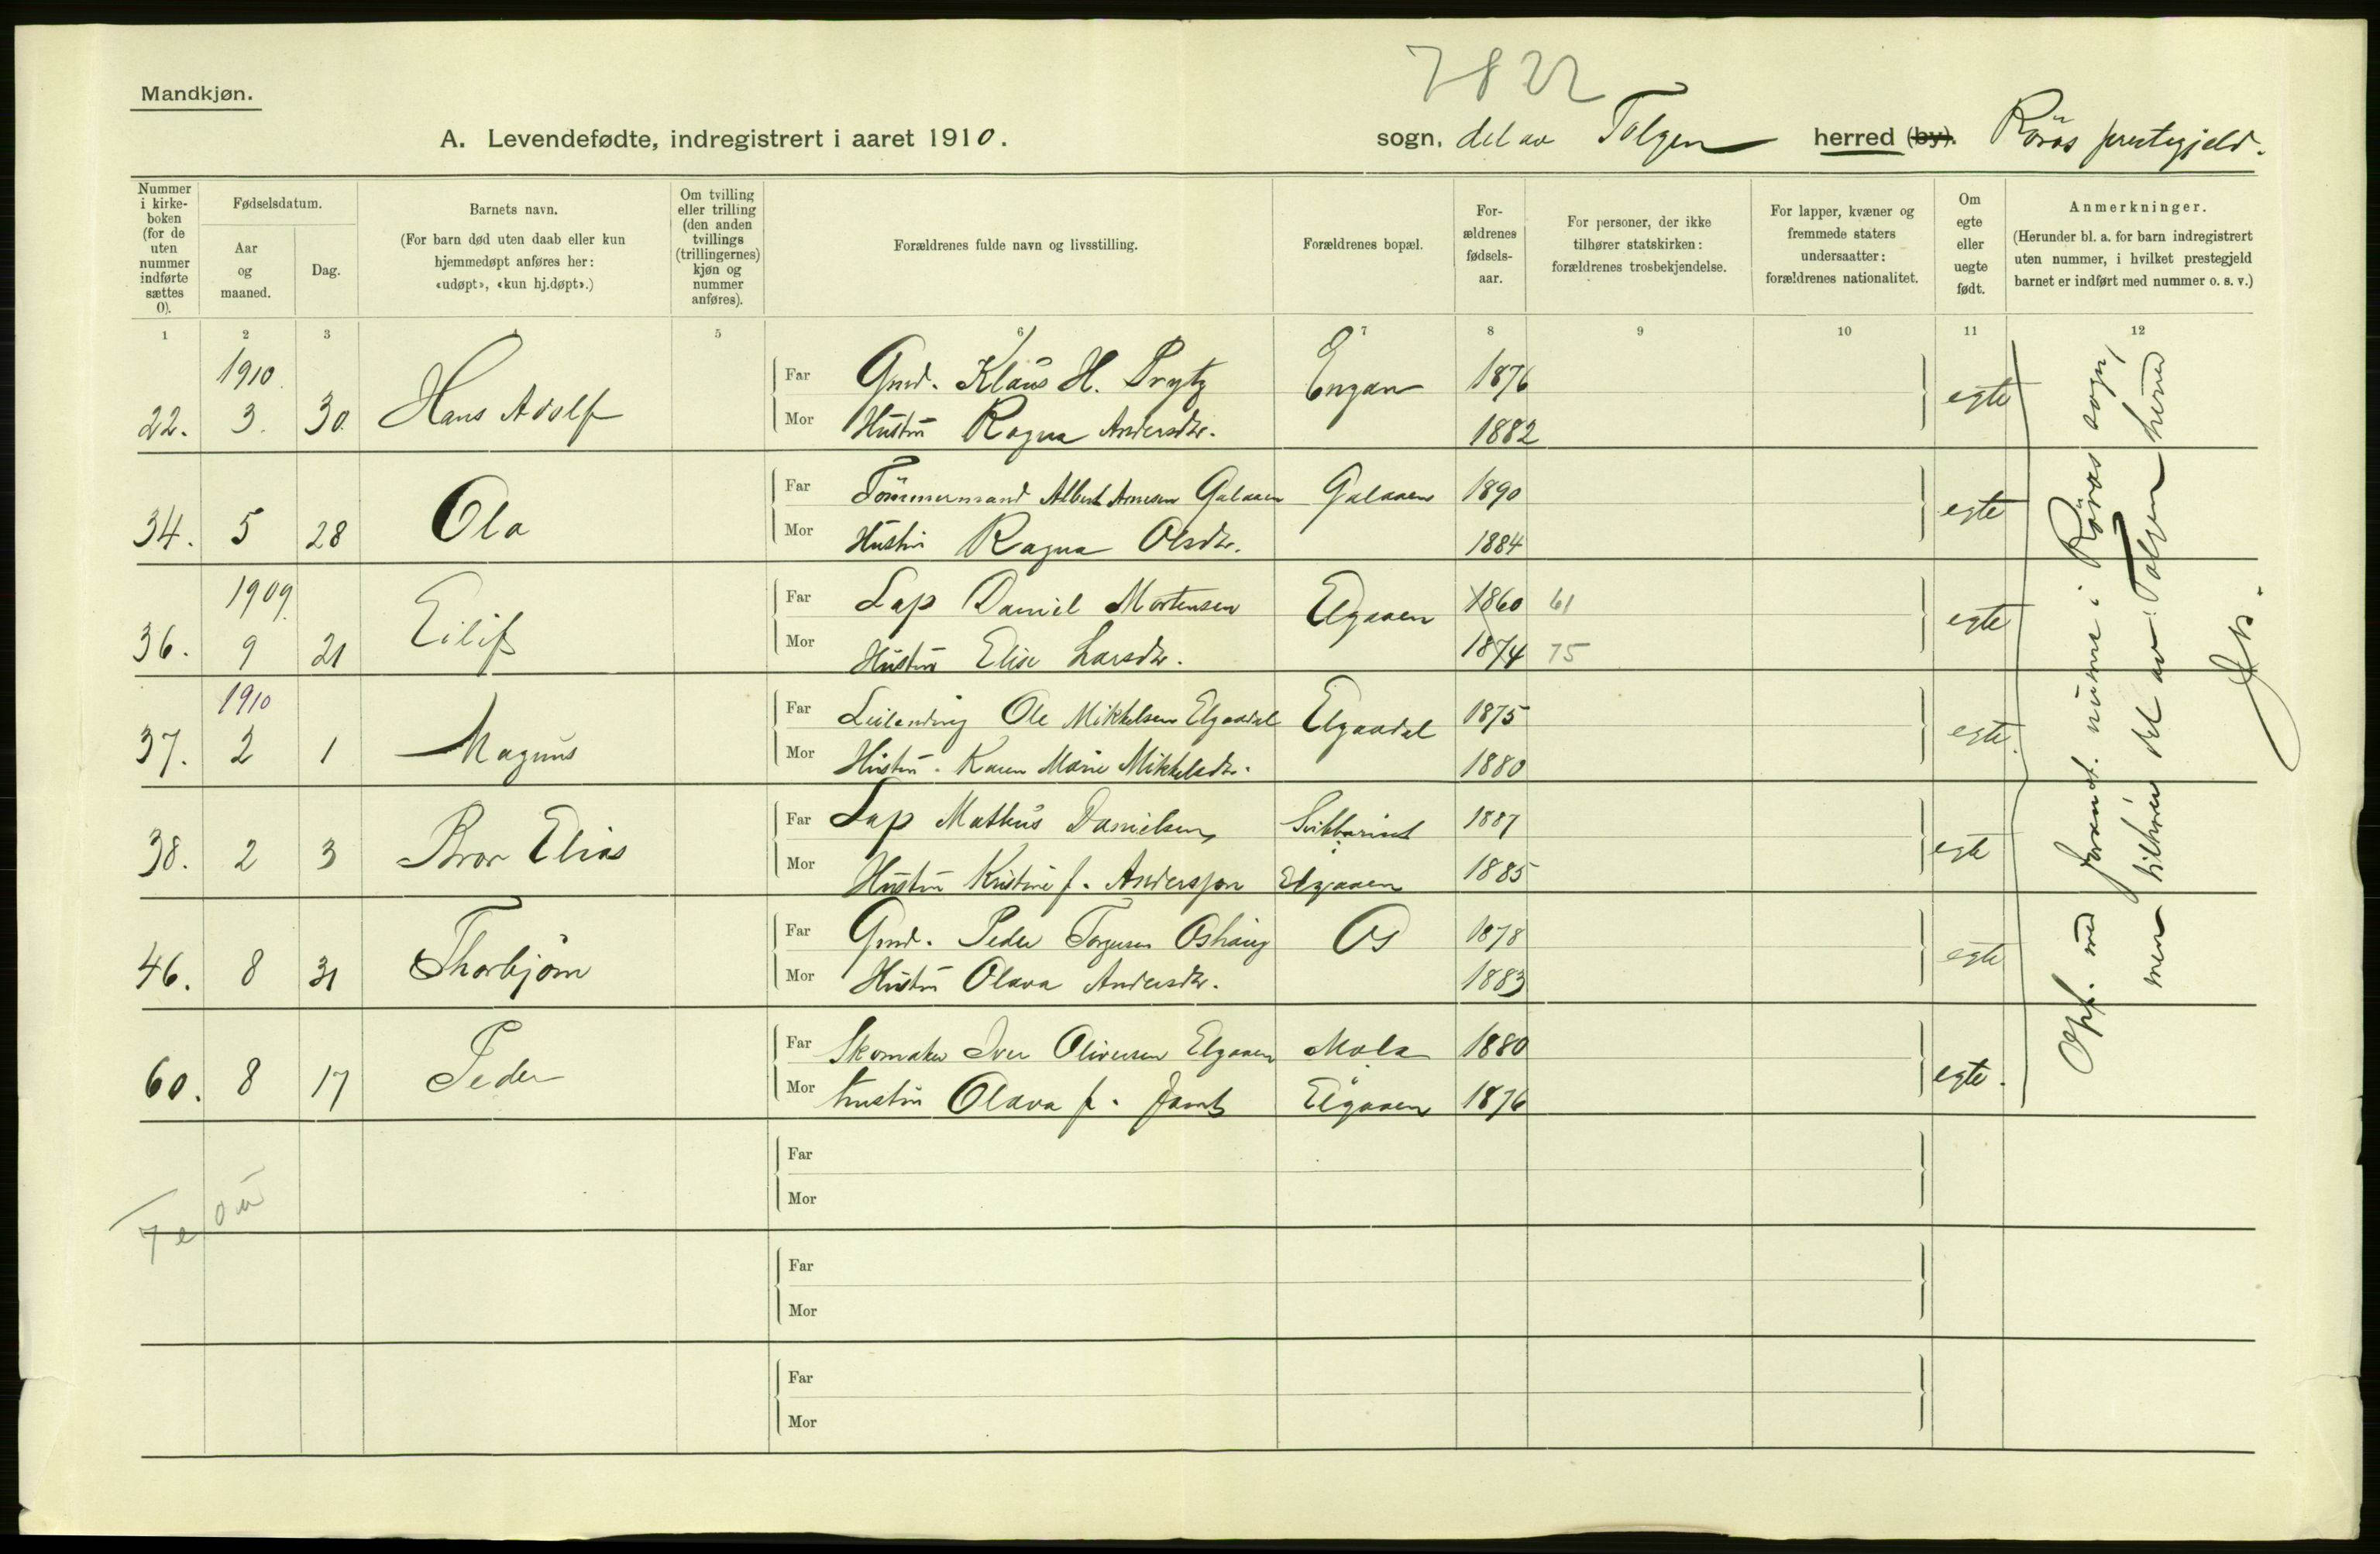 7822
Mandkjøn.
A. Levendefødte, indregistrert i aaret 1910.
sogn, del av Tolgen herred (by). Röros prestegjeld.
Nummer i kirke-boken (for de uten nummer indførte sættes 0).
Fødselsdatum.
Aar og maaned.
Dag.
Barnets navn.
(For barn død uten daab eller kun hjemmedøpt anføres her: «udøpt», «kun hj.døpt».)
Om tvilling eller trilling (den anden tvillings (trillingernes) kjøn og nummer anføres).
Forældrenes fulde navn og livsstilling.
Forældrenes bopæl.
For-ældrenes fødsels-aar.
For personer, der ikke tilhører statskirken: forældrenes trosbekjendelse.
For lapper, kvæner og fremmede staters undersaatter: forældrenes nationalitet.
Om egte eller uegte født.
Anmerkninger.
(Herunder bl. a. for barn indregistrert uten nummer, i hvilket prestegjeld barnet er indført med nummer o. s. v.)
1 2 3 5 6 7 8 9 10 11 12
1910
22. 3. 30. Hans Adolf
Far Gmd. Klaus H. Prytz Engan 1876
Mor Hustru Ragna Andersdtr. 1882
egte
34. 5 28 Ola
Far Tömmermand Albert Arnesen Galaaen Galaaen 1890
Mor Hustru Ragna Olsdtr. 1884
egte
1909
36. 9 21 Eilif
Far Lap Daniel Mortensen Elgaaen 1860 61
Mor Hustru Elise Larsdtr. 1874 75
egte
1910
37. 2 1 Magnus
Far Leilending Ole Mikkelsen Elgaadal Elgaadal 1875
Mor Hustru Karen Marie Mikkelsdtr. 1880
egte
38. 2 3 Bror Elias
Far Lap Mathus Danielsen 1887
Mor Hustru Kristine f. Andersson Elgaaen 1885
egte
46. 8 31 Thorbjörn
Far Gmd. Peder Torgersen Oshaug Os 1878
Mor Hustru Olava Andersdtr. 1883
egte
60. 8 17 Peder
Far Skomaker Iver Oliversen Elgaaen Mola 1880
Mor Hustru Olava f. Jamt Elgaaen 1876
egte.
Opf. med forandt. numre i Röros sogn,
men tilhörer del av Tolgen herred
7 e 0 u
Far
Mor
Far
Mor
Far
Mor